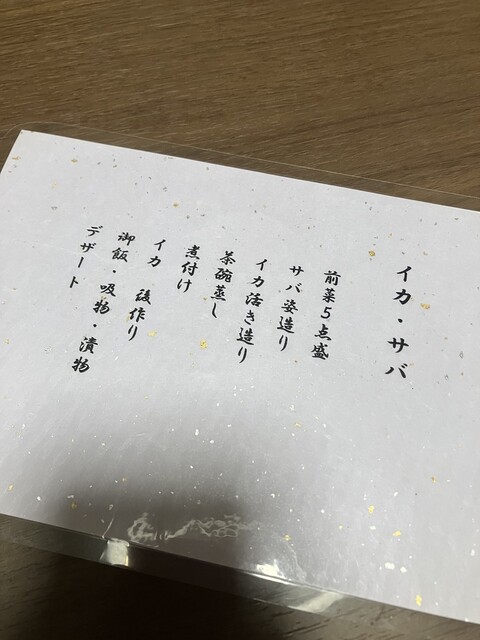 イカ・サバ
前菜5点盛
サバ姿造り
イカ活き造り
茶碗蒸し
煮付け
イカ 後作り
御飯・吸物・漬物
デザート